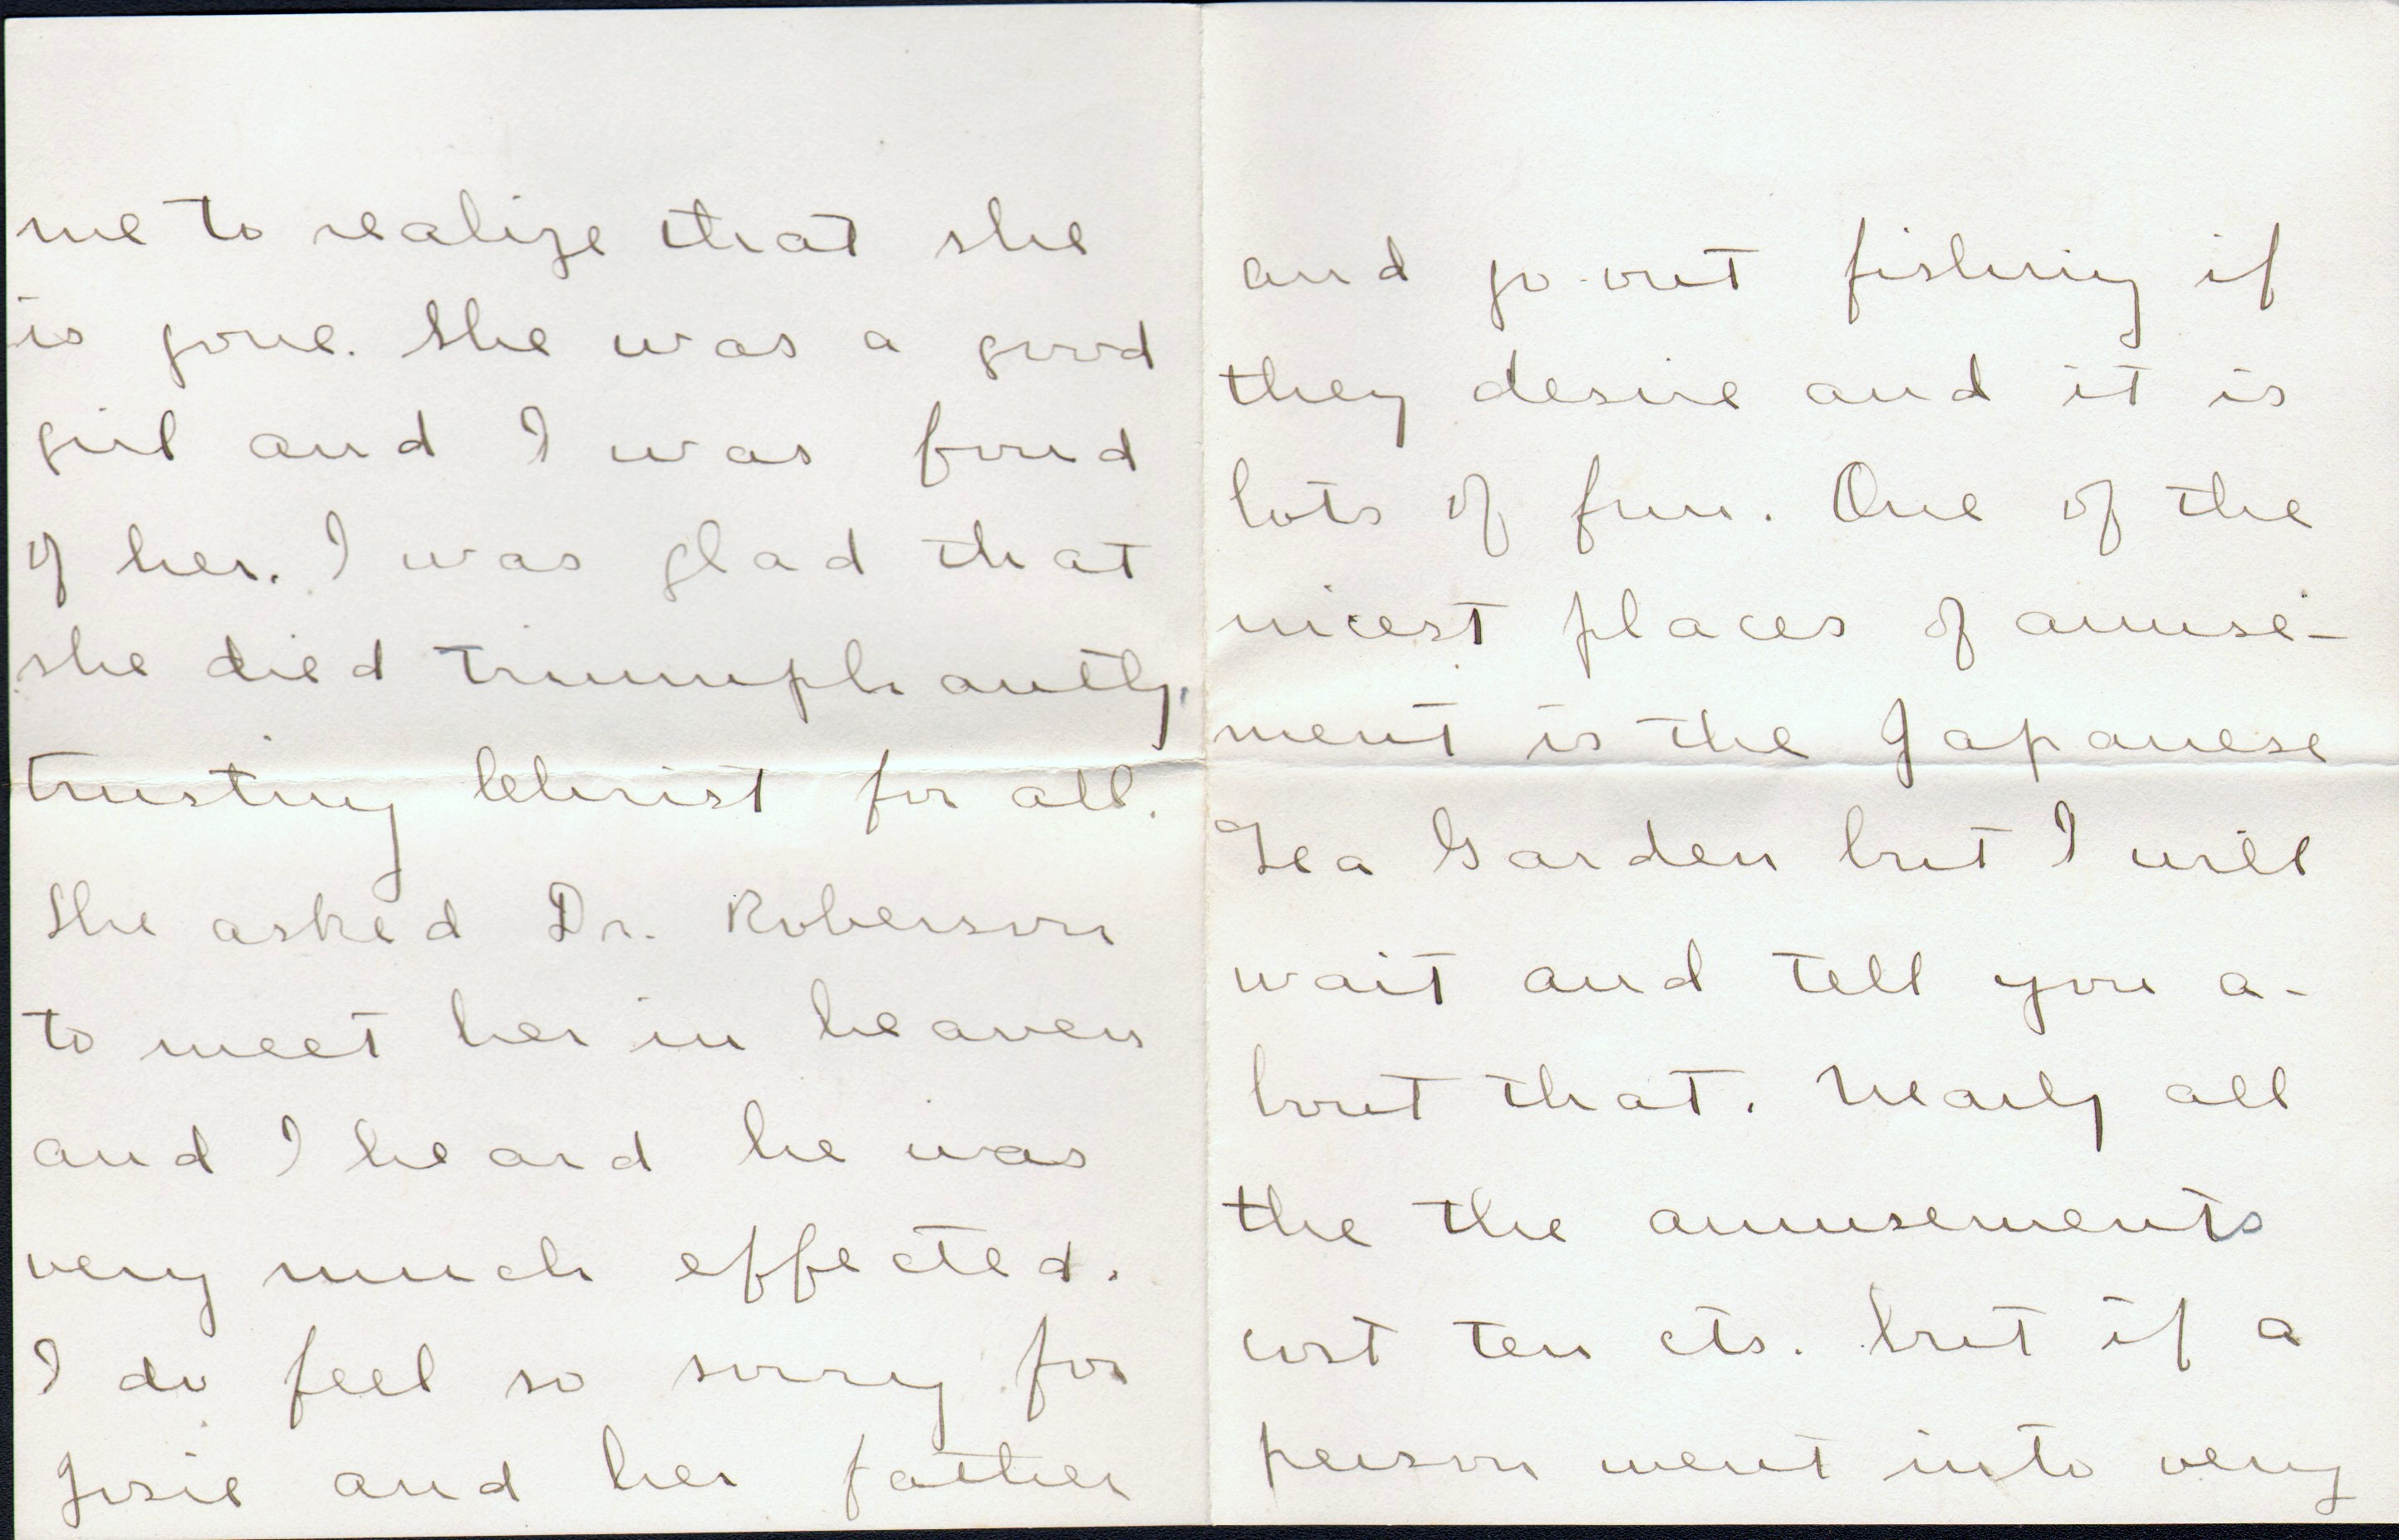 me to realize that she
is gone. She was a good
girl and I was fond
of her. I was glad that
she died triumphantly,
trusting Christ for all.
She asked Dr. Roberson
to meet her in heaven
and I heard he was
very much effected.
I do feel so sorry for
Josie and her father
and go out fishing if
they desire and it is
lots of fun. One of the
nicest places of amuse-
ment is the Japanese
Tea Garden but I will
wait and tell you a-
bout that. Nearly all
the the amusements
cost ten cts. but if a
person went into very